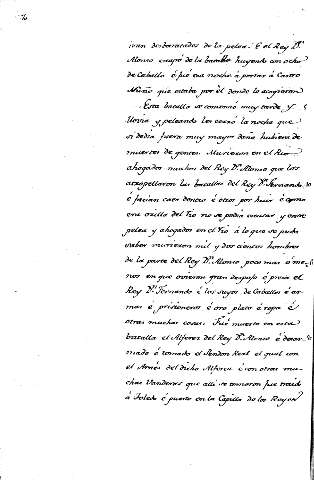 ivan desbaratados de la pelea. E el Rey Dn.
Alonso escapó de la batalla huyendo con ocho
de Caballo é fué esa noche á portar á Castro
Nuño que estaba por él donde lo acogieron
Esta batalla se comenzó muy tarde y
llovia y peleando les cerró la noche que
si de dia fuera muy mayor daño hubiera de
muertes de gentes. Murieron en el Rio
ahogados muchos del Rey Dn. Alonso que los
atropellaron las batallas del Rey Dn. Fernando
é facian caer dentro é otros por huir é como
era orilla del rio no se podia excusar y entre
pelea y ahogados en el rio á lo que se pudo
saber murieron mil y dos cientos hombres
de la parte del Rey Dn. Alonso poco mas ó me-
nos en que ovieron gran despojo é presa el
Rey Dn. Fernando é los suyos de Caballos é ar-
mas é prisioneros é oro plata é ropa é
otras muchas cosas. Fué muerto en esta
batalla el Alferez del Rey Dn. Alonso é
é tomado el Pendon Real el qual con
el Arnés del dicho Alferez é con otras mu-
chas Vanderas que allí se tomaron fue traido
á Toledo é puesto en la Capilla de los Reyes